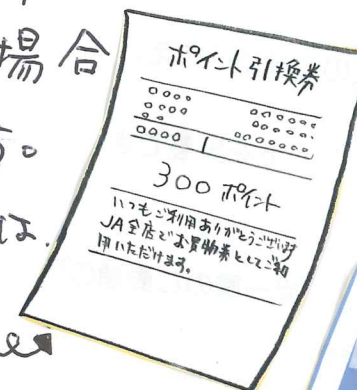 場合
す。
は、
ポイント引換券
300 ポイント
いつもご利用ありがとうございます
JA全店でお買物券としてご利
用いただけます。